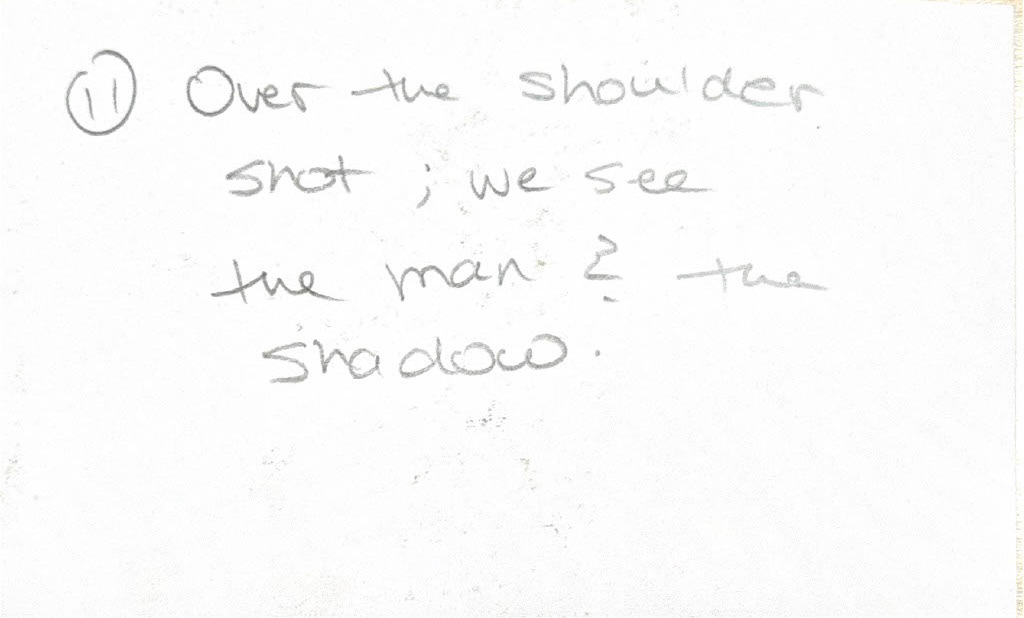 ⑪ Over the shoulder
shot ; we see
the man & the
shadow.